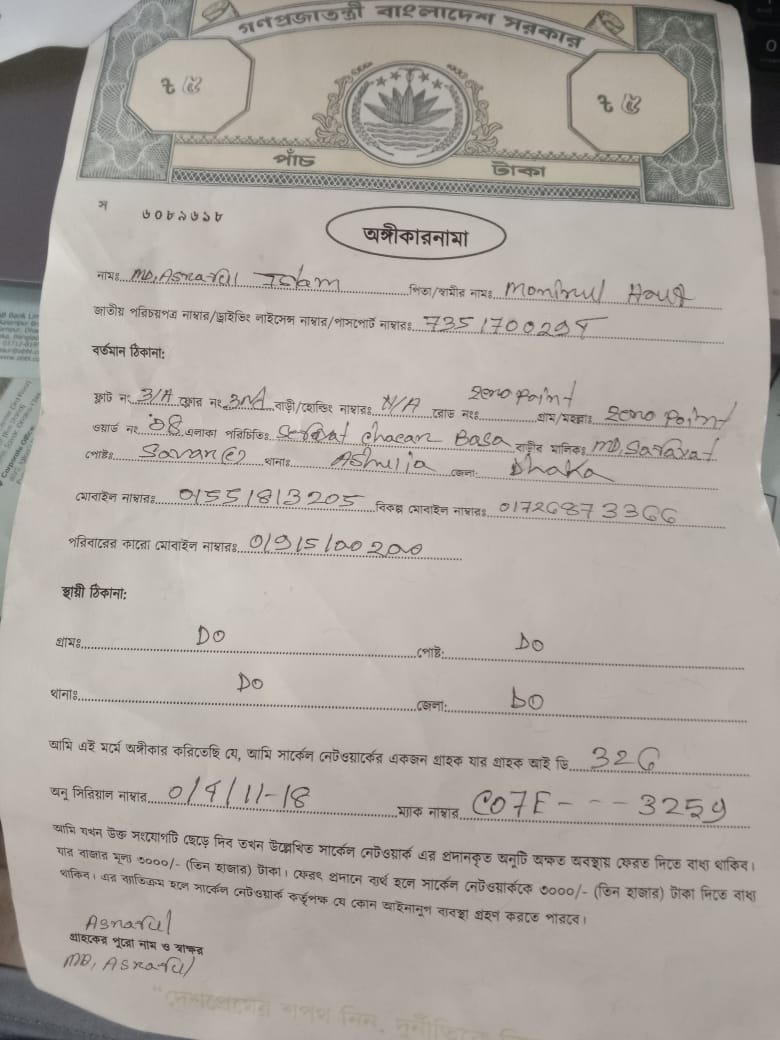 গণপ্রজাতন্ত্রী বাংলাদেশ সরকার
৳ ৫ ৳ ৫
পাঁচ টাকা
স ৬০৮৯৬১৮
অঙ্গীকারনামা
নামঃ MD, Asraful Islam পিতা/স্বামীর নামঃ Monirul
জাতীয় পরিচয়পত্র নাম্বার/ড্রাইভিং লাইসেন্স নাম্বার/পাসপোর্ট নাম্বারঃ
বর্তমান ঠিকানা:
ফ্লাট নং 3/A ফ্লোর নং 3nd বাড়ী/হোল্ডিং নাম্বারঃ N/A রোড নংঃ Zero Point গ্রাম/মহল্লাঃ Zero Point
ওয়ার্ড নং এলাকা পরিচিতিঃ Basa বাড়ীর মালিকঃ MD,
পোষ্টঃ Savar থানাঃ Ashulia জেলা: Dhaka
মোবাইল নাম্বারঃ 01551813205 বিকল্প মোবাইল নাম্বারঃ 01726873366
পরিবারের কারো মোবাইল নাম্বারঃ 01915100200
স্থায়ী ঠিকানা:
গ্রামঃ DO পোষ্ট: DO
থানাঃ DO জেলা: DO
আমি এই মর্মে অঙ্গীকার করিতেছি যে, আমি সার্কেল নেটওয়ার্কের একজন গ্রাহক যার গ্রাহক আই ডি 326
অনু সিরিয়াল নাম্বার 0/4/11-18 ম্যাক নাম্বার C07E - - - 3259
আমি যখন উক্ত সংযোগটি ছেড়ে দিব তখন উল্লেখিত সার্কেল নেটওয়ার্ক এর প্রদানকৃত অনুটি অক্ষত অবস্থায় ফেরত দিতে বাধ্য থাকিব।
যার বাজার মূল্য ৩০০০/- (তিন হাজার) টাকা। ফেরৎ প্রদানে ব্যর্থ হলে সার্কেল নেটওয়ার্ককে ৩০০০/- (তিন হাজার) টাকা দিতে বাধ্য
থাকিব। এর ব্যতিক্রম হলে সার্কেল নেটওয়ার্ক কর্তৃপক্ষ যে কোন আইনানুগ ব্যবস্থা গ্রহণ করতে পারবে।
Asraful
গ্রাহকের পুরো নাম ও স্বাক্ষর
MD, Asraful
"দেশপ্রেমের শপথ নিন, দুর্নীতিকে